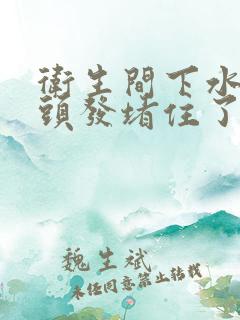 衛生間下水
頭發堵住了
魏生斌
未任同意禁止轉載